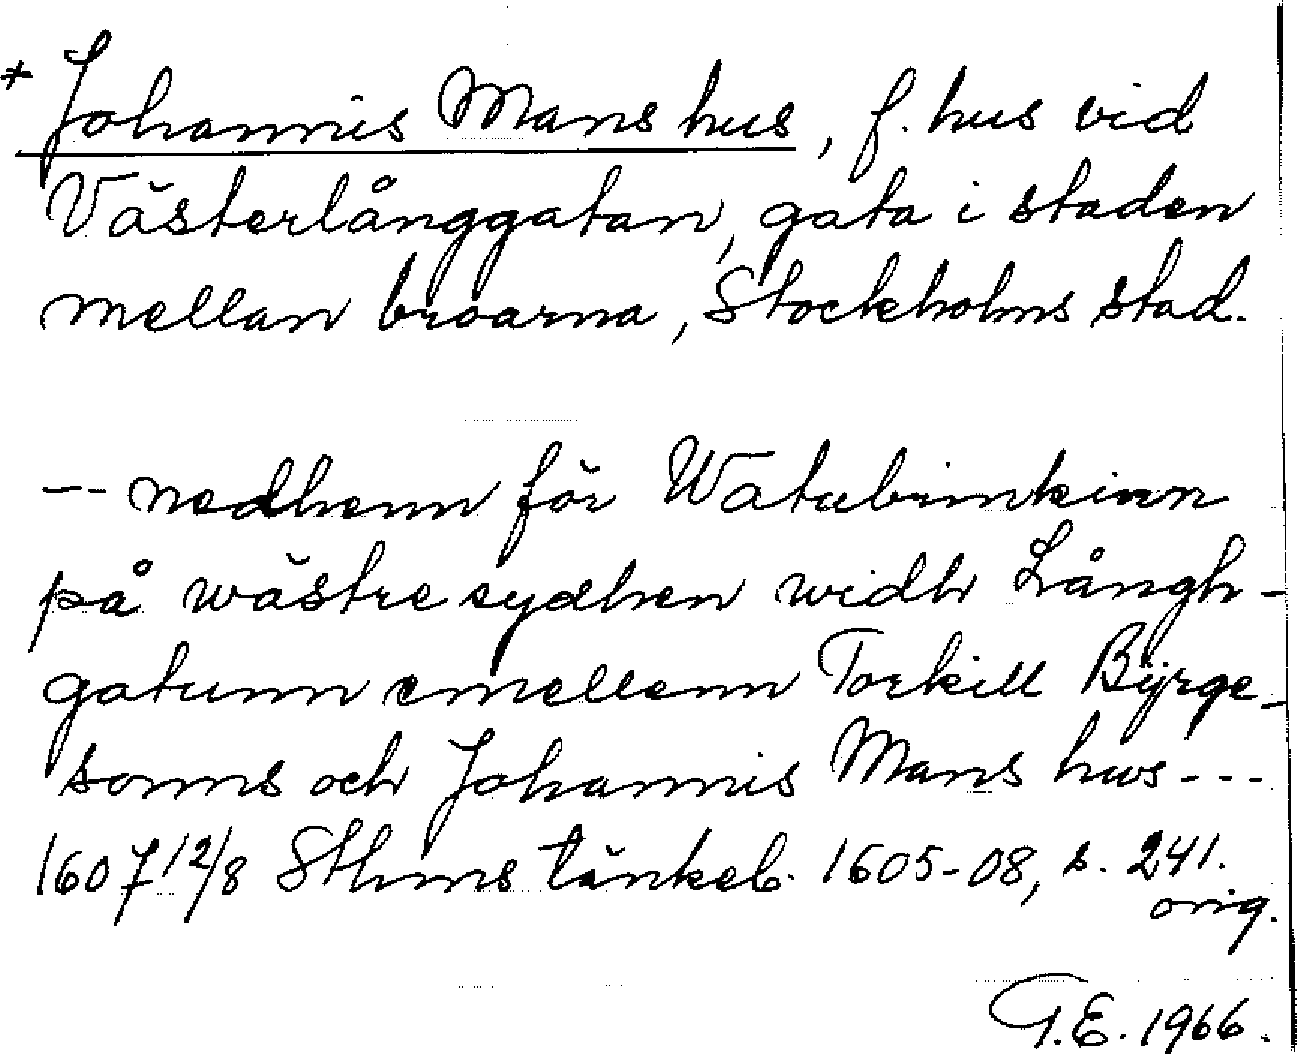 * Johannis Mans hus, f. hus vid
Västerlånggatan, gata i staden
mellan broarna, Stockholms stad.
-- nedhenn för Watubrinkinn
på wästre sydhen widh Långh-
gatunn emellenn Torkill Byrge-
sonns och Johannis Mans hws ---
1607 12/8 Sthms tänkeb. 1605-08, s. 241.
orig.
G.E. 1966.